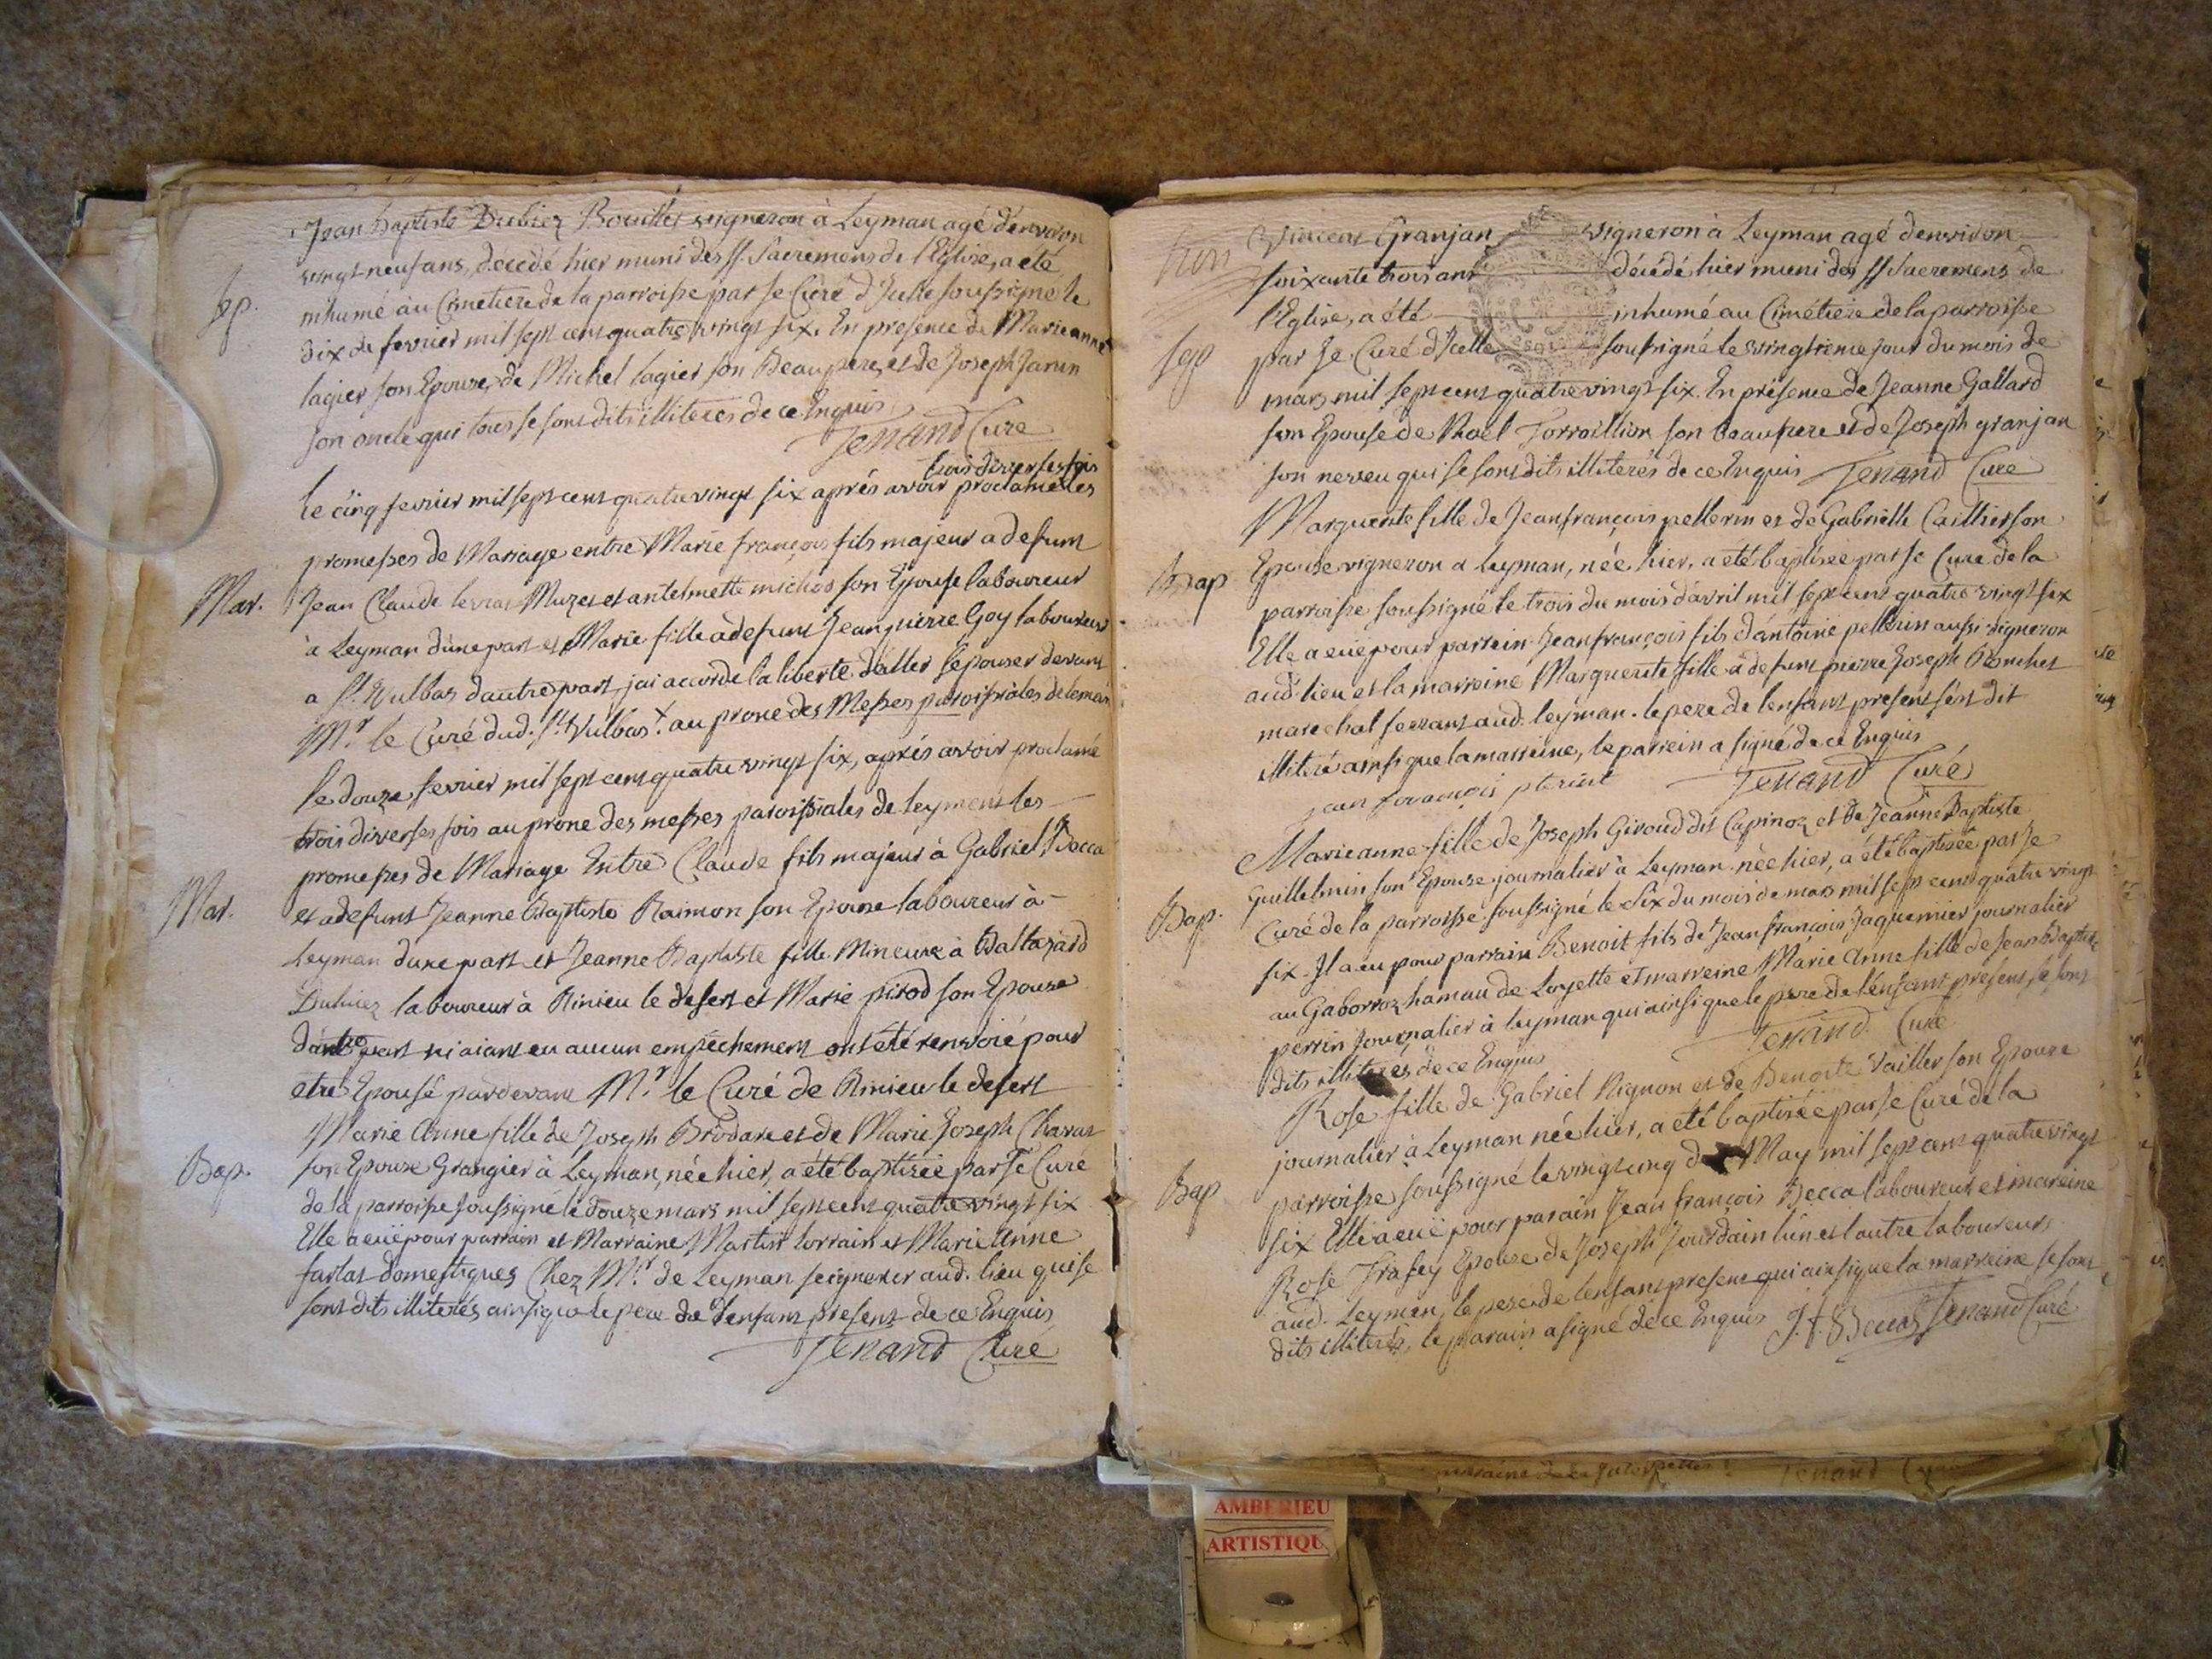 Jean Baptiste Dubiez Bouillet vigneron à Leyman agé d'environ
vingt neuf ans, décédé hier muni des SS. Sacremens de l'Eglise, a été
Sep.
inhumé au Cimetiere de la parroisse par Je Curé d'Icelle soussigné le
dix de fevrier mil sept cent quatre vingt six. En presence de Marieanne
lagier son Epouse, de Michel lagier son Beaupere, et de Joseph Janin
son oncle qui tous se sont dits illiteres de ce Enquis
Tenand Curé
trois diverses fois
le cinq fevrier mil sept cent quatre vingt six aprés avoir proclamé les
promesses de Mariage entre Marie françois fils majeur a defunt
Mar.
Jean Claude levrat Muzet et antelmette michod son Epouse laboureur
à Leyman d'une part et Marie fille à defunt Jean pierre Goy laboureur
a St. Vulbas d'autre part, jai accordé la liberté d'aller sépouser devant
Mr. le Curé dud. St. Vulbas. x au prone des Messes paroissiales de leman
le douze fevrier mil sept cent quatre vingt six, aprés avoir proclamé
trois diverses fois au prone des messes paroissiales de leyment les
promesses de Mariage Entre Claude fils majeur à Gabriel Becca
Mar.
et a defunt Jeanne Baptiste Raimon son Epouse laboureur à
Leyman d'une part et Jeanne Baptiste fille Mineure à Baltazard
Dubiez laboureur à Rinieu le desert et Marie pirod son Epouse
d'autre part n'i aiant eu aucun empêchement ont été renvoié pour
etre Epousé pardevant Mr. le Curé de Rinieu le desert
Marie Anne fille de Joseph Brodare et de Marie Joseph Charat
Bap.
son Epouse Grangier à Leyman, née hier, a été baptisée par Je Curé
de la parroisse soussigné le douze mars mil sept cent quatre vingt six
Elle a euë pour parrain et Marraine Martin lorrain et Marie Anne
farlat domestiques Chez Mr. de Leyman seigneur aud. lieu qui se
sont dits illiterés ainsi que le pere de l'enfant present de ce Enquis
Tenand Curé
Vincent Granjan vigneron à Leyman agé denviron
soixante trois ans décédé hier muni des SS Sacremens de
l'Eglise, a été inhumé au Cimétiere de la parroisse
Sep
par Je Curé d'Icelle soussigné le vingtieme jour du mois de
mars mil sept cent quatre vingt six. En présence de Jeanne Gallard
son Epouse de Noel Torraillion son beaufrere et de Joseph granjan
son neveu qui se sont dits illiterés de ce Enquis Tenand Curé
Marguerite fille de Jean françois pellerin et de Gabrielle Caillier son
Bap
Epouse vigneron a leyman, née hier, a été baptisée par Je Curé de la
parroisse soussigné le trois du mois d'avril mil sept cent quatre vingt six
Elle a euë pour parrein Jean françois fils d'antoine pellerin aussi vigneron
aud. lieu et la marreine Marguerite fille a defunt pierre Joseph Ronchet
marechal ferrant aud. leyman. le pere de lenfant present s'est dit
illiteré ainsi que la marreine, le parrein a signé de ce Enquis
jean francois plerint Tenand Curé
Marieanne fille de Joseph Giroud dit Capinoz et de Jeanne Baptiste
Guillelmin son Epouse journalier à Leyman née hier, a été baptisée par Je
Bap.
Curé de la parroisse soussigné le Six du mois de mars mil sept cent quatre vingt
six. Il a eu pour parrain Benoit fils de Jean françois Jaquemier journalier
au Gaborroz hamau de Loyette et marreine Marie Anne fille de Jean Baptiste
perrin Journalier à leyman qui ainsi que le pere de l'enfant present se sont
dits illiterés de ce Enquis Tenand. Curé
Rose fille de Gabriel Nignon et de Benoite Vailler son Epouse
journalier à Leyman née hier, a été baptisée par Je Curé de la
Bap
parroisse soussigné le vingt cinq de May mil sept cent quatre vingt
six Elle a euë pour parain Jean françois Becca laboureur et mareine
Rose Trafey Epouse de Joseph Jourdain l'un et l'autre laboureurs
aud. Leyman, le pere de lenfant present qui ainsi que la marreine se sont
dits illiterés, le parain a signé de ce Enquis J. f. Becca Tenand Curé
Tenand
AMBERIEU
ARTISTIQU